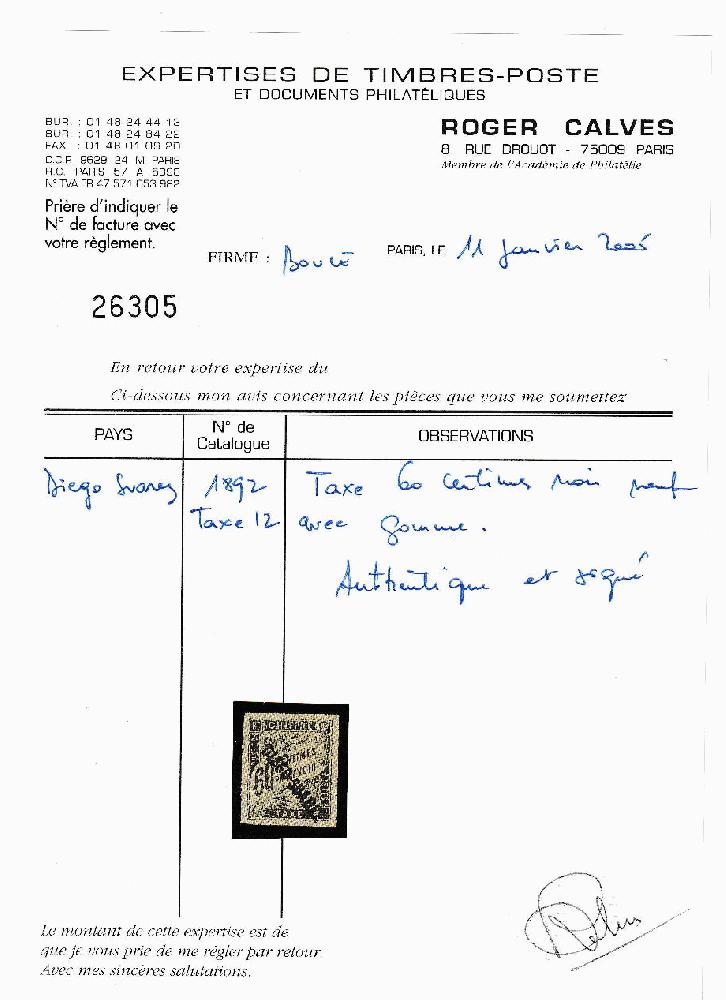 EXPERTISES DE TIMBRES-POSTE
ET DOCUMENTS PHILATÉLIQUES
BUR. : 01 48 24 44 13
BUR. : 01 48 24 84 22
FAX : 01 48 01 09 20
C.C.P. 9629 24 M PARIS
R.C. PARIS 57 A 5300
N° TVA FR 47 571 053 962
ROGER CALVES
8 RUE DROUOT - 75009 PARIS
Membre de l'Académie de Philatélie
Prière d'indiquer le
N° de facture avec
votre règlement.
FIRME : Boulé
PARIS, LE 11 Janvier 2006
26305
En retour votre expertise du
Ci-dessous mon avis concernant les pièces que vous me soumettez
PAYS
N° de
Catalogue
OBSERVATIONS
Diego Suarez 1892 Taxe 60 centimes noir neuf
Taxe 12 avec gomme.
Authentique et signé
60
Le montant de cette expertise est de
que je vous prie de me régler par retour
Avec mes sincères salutations.